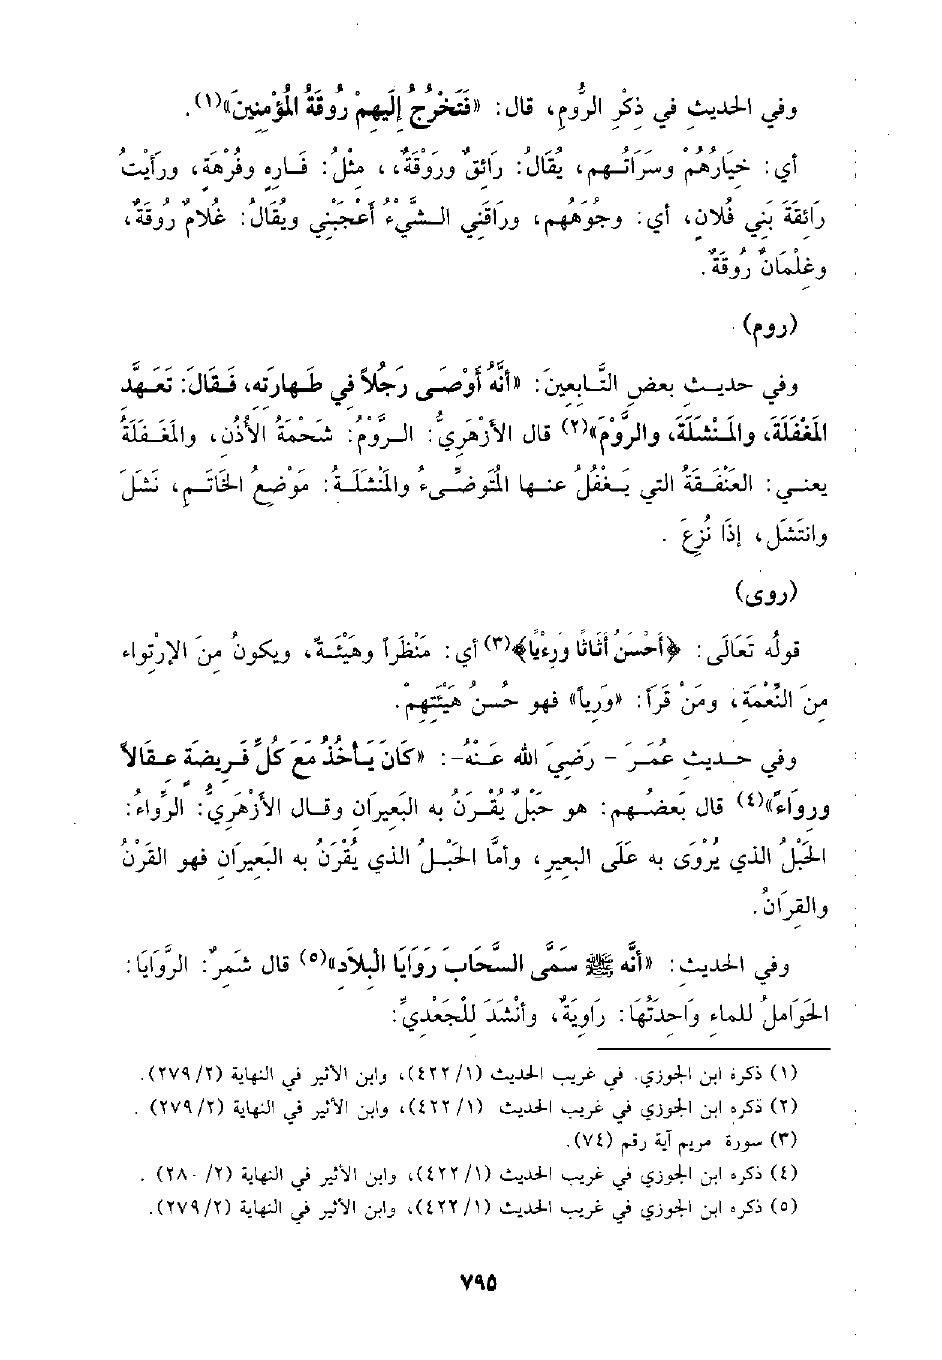 وفي الحديثِ في ذِكْرِ الرُّومِ، قال: «فَتَخْرُجُ إِلَيهِمْ رُوقَةُ المُؤْمِنِينَ»(١).
أي: خيَارُهُمْ وسَرَاتُهم، يُقَالُ: رَائقٌ ورَوْقَةٌ، ، مثْلُ: فَارِهٍ وفُرْهَة، ورَأَيتُ
رَائِقَةَ بَنِي فُلَانٍ، أي: وجُوهَهُم، ورَاقَنِي الشَّيْءُ أَعْجَبَنِي ويُقَالُ: غُلَامٌ رُوقَةٌ،
وغِلْمَانٌ رُوقَةٌ.
(روم)
وفي حديث بعضِ التَّابعينَ: «أَنَّهُ أَوْصَى رَجُلاً في طَهارَتِه، فَقَالَ: تَعَهَّد
المَغْفَلَةَ، والمَنْشَلَةَ، والرَّوْمَ»(٢) قال الأزهَرِيُّ: الرَّوْمُ: شَحْمَةُ الأُذُنِ، والمَغْفَلةُ
يعني: العَنْفَقَةُ التي يَغْفُلُ عنها المُتَوضِّىءُ والمَنْشَلَةُ: مَوْضِعُ الخَاتَمِ، نَشَلَ
وانتَشَل، إذَا نُزِعَ .
(روى)
قولُه تَعَالَى: ﴿أَحْسَنُ أَثَاثًا وَرِءْيًا﴾(٣) أي: مَنْظَراً وهَيْئَةً، ويَكونُ مِنَ الإرْتِواء
مِنَ النِّعْمَةِ، ومَنْ قَرَأَ: «ورِياً» فهو حُسنُ هَيْئَتِهِمْ.
وفي حديث عمَرَ - رَضِيَ الله عَنْهُ-: «كَانَ يَأخُذُ مَعَ كُلِّ فَرِيضَةٍ عِقَالاً
ورِوَاءً»(٤) قال بَعضُهم: هو حَبْلٌ يُقْرَنُ به البَعيرَانِ وقال الأزْهَرِيُّ: الرِّواءُ:
الحَبْلُ الذي يُرْوَى به عَلَى البعيرِ، وأمَّا الحَبْلُ الذي يُقْرَنُ به البَعيرَانِ فهو القَرْنُ
والقِرَانُ.
وفي الحديث: «أنَّه ﷺ سَمَّى السَّحَابَ رَوَايَا الْبلَادِ»(٥) قال شَمِرٌ: الرَّوَايَا:
الحَوَامِلُ للماءِ وَاحِدَتُهَا: رَاوِيَةٌ، وأَنْشَدَ لِلْجَعْدِيِّ:
(١) ذكره ابن الجوزي. في غريب الحديث (٤٢٢/١)، وابن الأثير في النهاية (٢٧٩/٢).
(٢) ذكره ابن الجوزي في غريب الحديث (٤٢٢/١)، وابن الأثير في النهاية (٢٧٩/٢) .
(٣) سورة مريم آية رقم (٧٤).
(٤) ذكره ابن الجوزي في غريب الحديث (٤٢٢/١)، وابن الأثير في النهاية (٢٨٠/٢) .
(٥) ذكره ابن الجوزي في غريب الحديث (٤٢٢/١)، وابن الأثير في النهاية (٢٧٩/٢).
٧٩٥